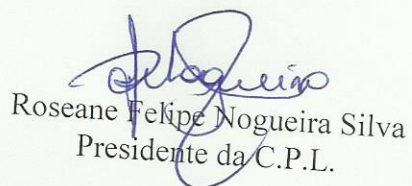 Roseane Felipe Nogueira Silva
Presidente da C.P.L.